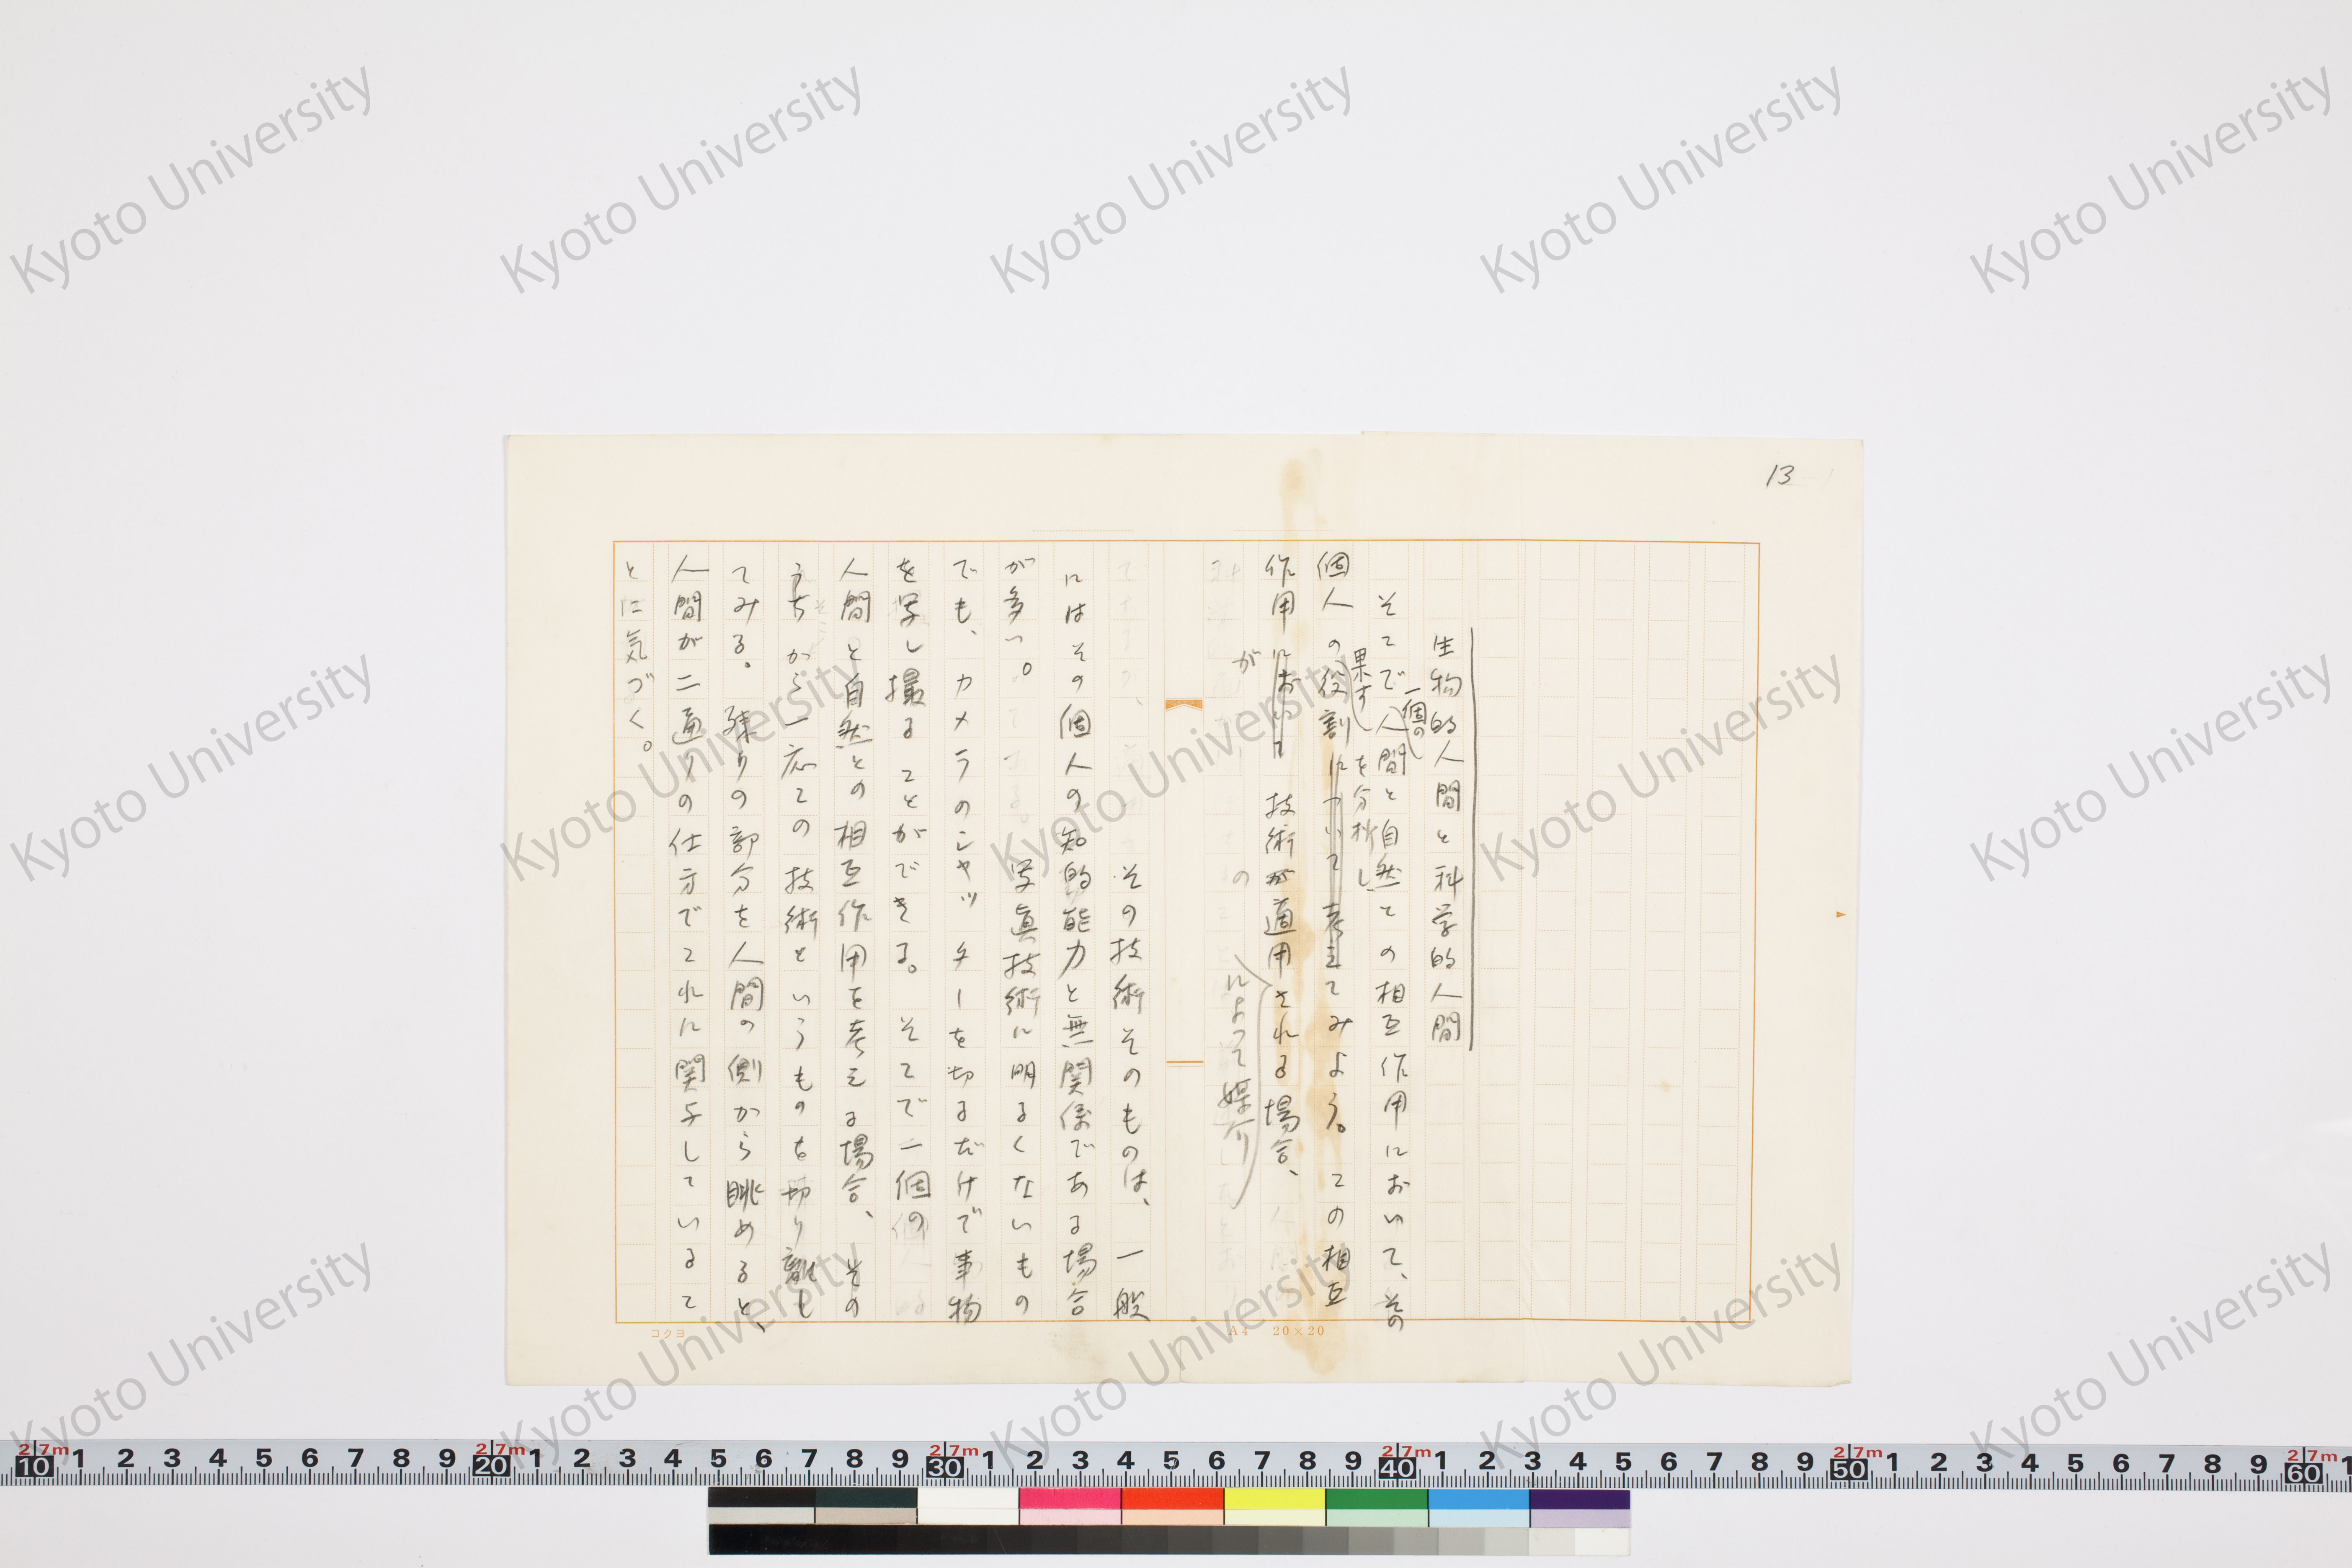 13
生物的人間と科学的人間
そこで人間と自然との相互作用において、その
一個の
個人の役割について考えてみよう。この相互
果す
を分析し
作用において技術が適用される場合、
が
の
によって媒介
その技術そのものは、一般
にはその個人の知的能力と無関係である場合
が多い。写真技術に明るくないもの
でも、カメラのシャッターを切るだけで事物
を写し撮ることができる。そこで一個の
人間と自然との相互作用を考える場合、その
うちから一応この技術というものを切り離し
てみる。残りの部分を人間の側から眺めると、
人間が二通りの仕方でこれに関与しているこ
とに気づく。
コクヨ
A4 20×20
Kyoto University